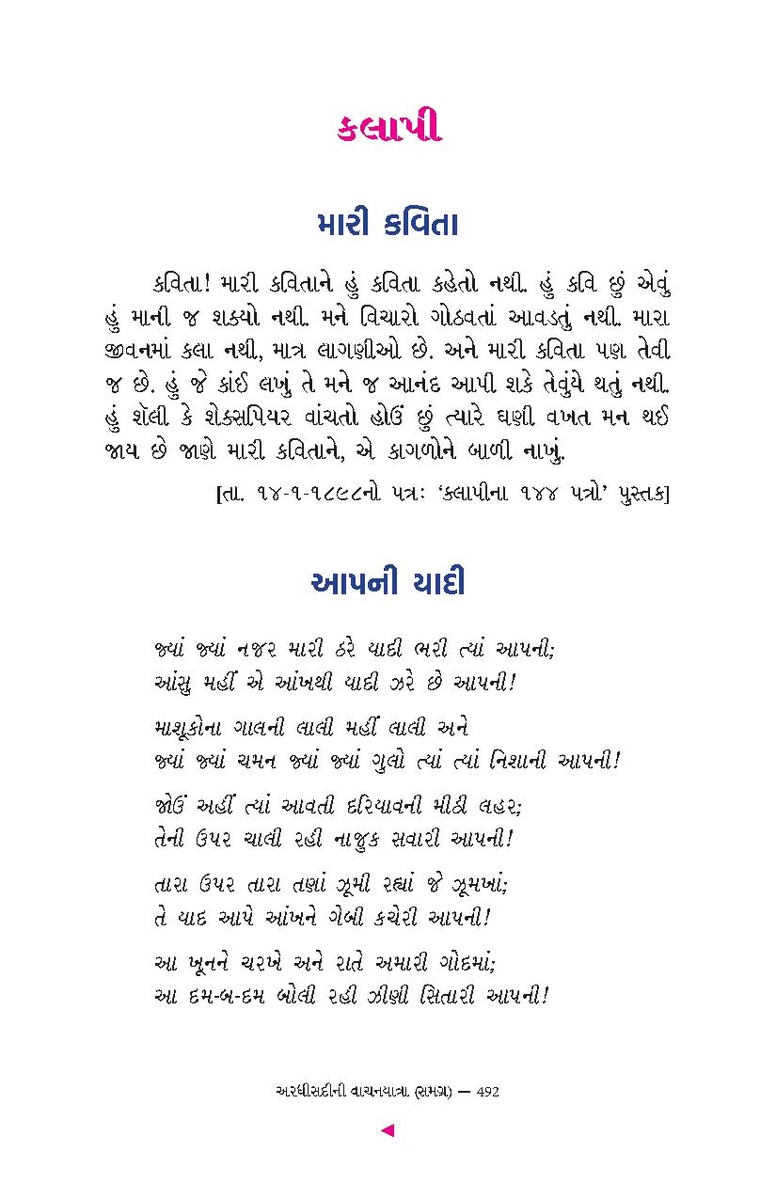 કલાપી
મારી કવિતા
કવિતા! મારી કવિતાને હું કવિતા કહેતો નથી. હું કવિ છું એવું
હું માની જ શક્યો નથી. મને વિચારો ગોઠવતાં આવડતું નથી. મારા
જીવનમાં કલા નથી, માત્ર લાગણીઓ છે. અને મારી કવિતા પણ તેવી
જ છે. હું જે કાંઈ લખું તે મને જ આનંદ આપી શકે તેવુંયે થતું નથી.
હું શૅલી કે શેક્સપિયર વાંચતો હોઉં છું ત્યારે ઘણી વખત મન થઈ
જાય છે જાણે મારી કવિતાને, એ કાગળોને બાળી નાખું.
[તા. ૧૪-૧-૧૮૯૮નો પત્રઃ ‘કલાપીના ૧૪૪ પત્રો’ પુસ્તક]
આપની યાદી
જ્યાં જ્યાં નજર મારી ઠરે યાદી ભરી ત્યાં આપની;
આંસુ મહીં એ આંખથી યાદી ઝરે છે આપની!
માશૂકોના ગાલની લાલી મહીં લાલી અને
જ્યાં જ્યાં ચમન જ્યાં જ્યાં ગુલો ત્યાં ત્યાં નિશાની આપની!
જોઉં અહીં ત્યાં આવતી દરિયાવની મીઠી લહર;
તેની ઉપર ચાલી રહી નાજુક સવારી આપની!
તારા ઉપર તારા તણાં ઝૂમી રહ્યાં જે ઝૂમખાં;
તે યાદ આપે આંખને ગેબી કચેરી આપની!
આ ખૂનને ચરખે અને રાતે અમારી ગોદમાં;
આ દમ-બ-દમ બોલી રહી ઝીણી સિતારી આપની!
અરધીસદીની વાચનયાત્રા (સમગ્ર) — 492